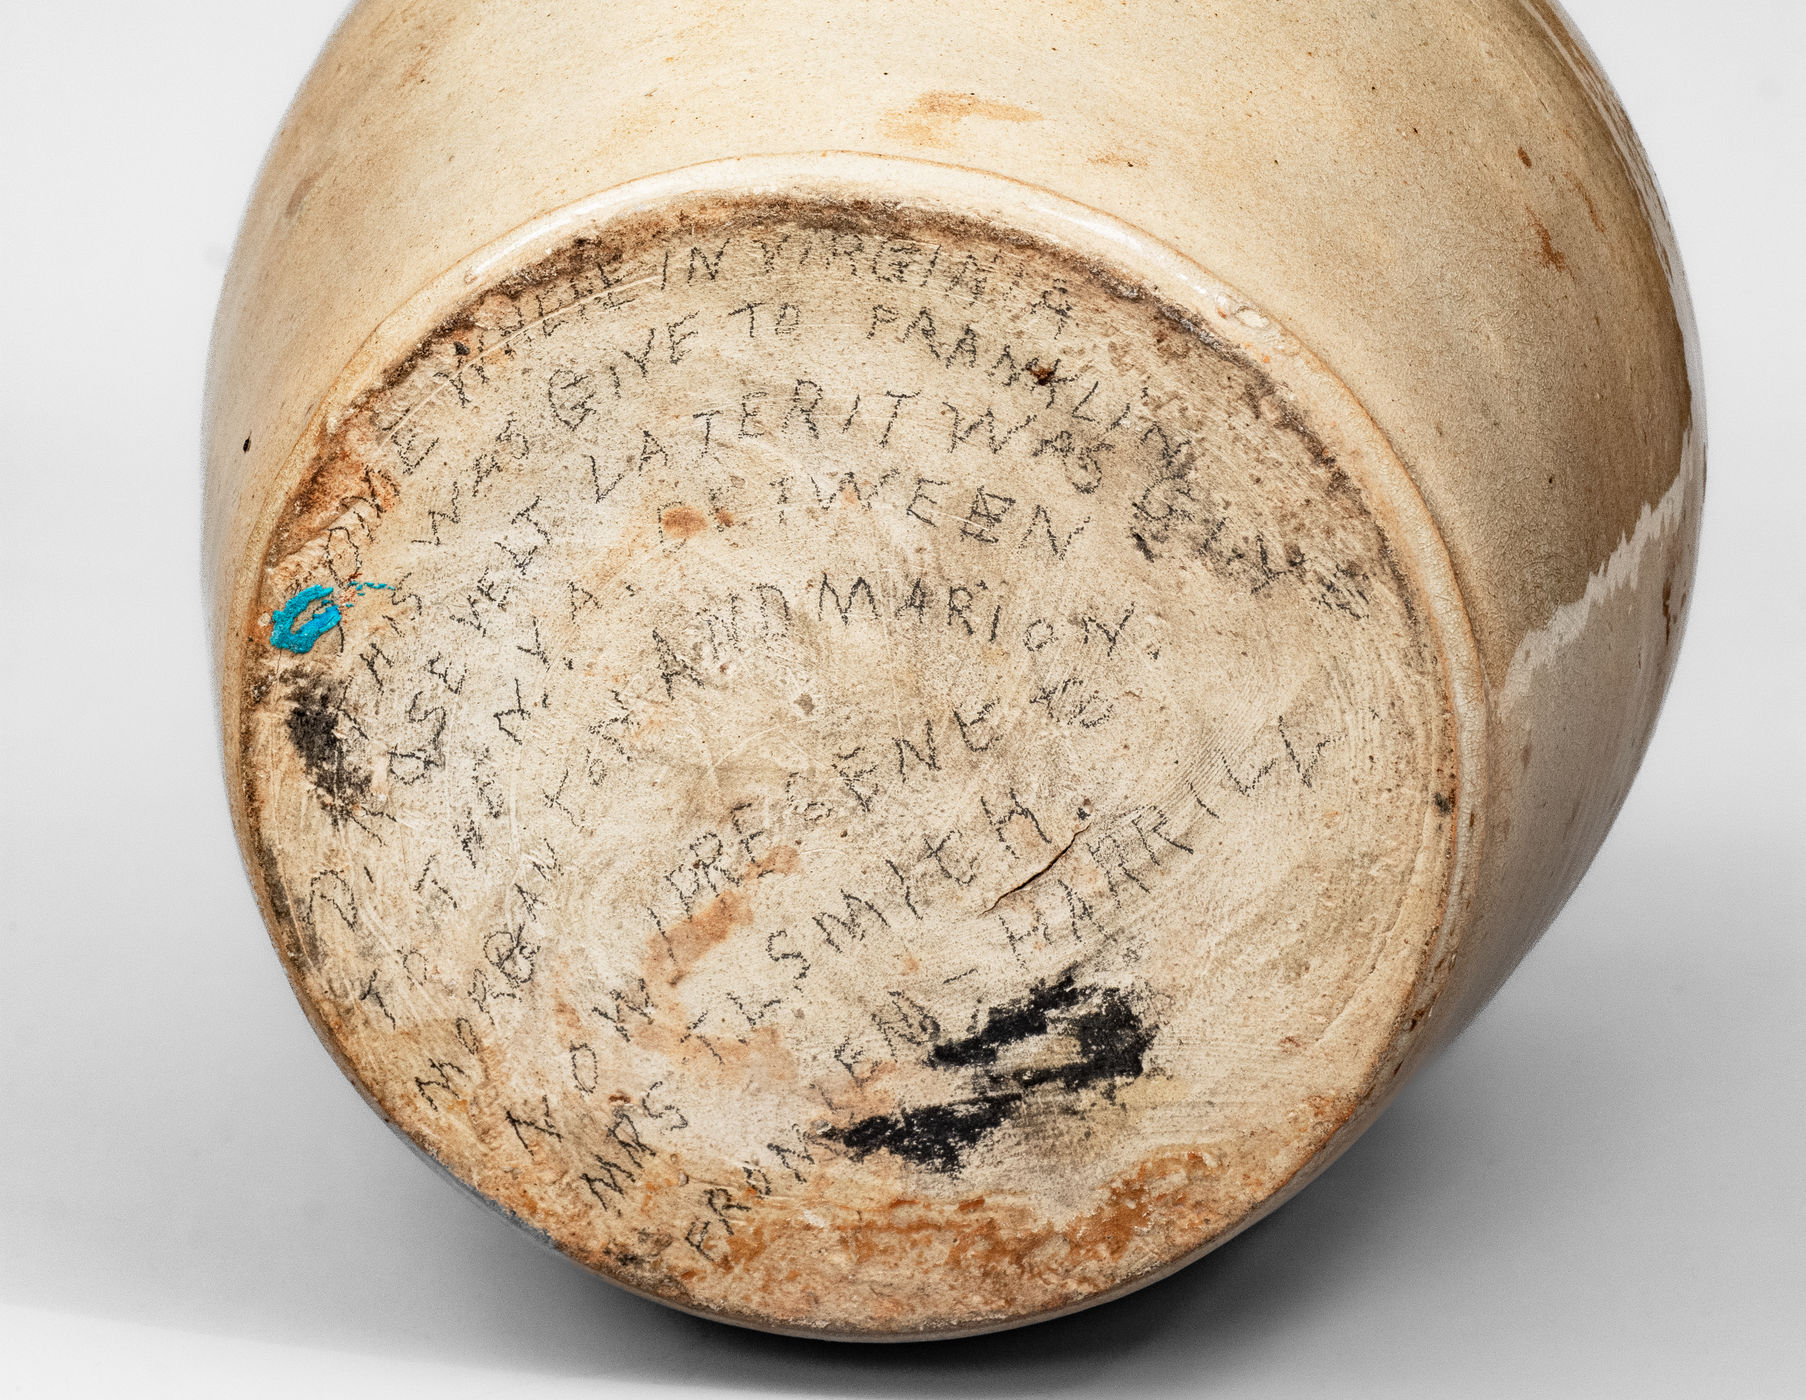 SOME WHERE IN VIRGINIA
THIS WAS GIVE TO FRANKLIN
D. ROSEVELT LATER IT WAS
TO THE N. Y. A. BETWEEN
MORGAN TON AND MARION.
NOW I PRESENE TO
MRS T L SMITH.
FROM LEN - HARRILL